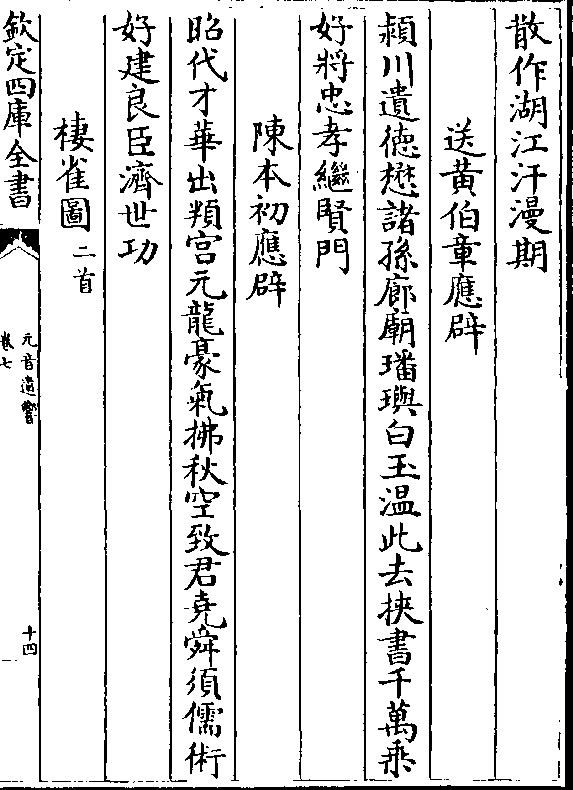 散作湖江汗漫期
送黄伯章應辟
潁川遺德懋諸孫廊廟璠璵白玉温此去挾書千萬乘
好將忠孝繼賢門
陳本初應辟
昭代才華出類宫元龍豪氣拂秋空致君堯舜須儒術
好建良臣濟世功
棲雀圖二首
欽定四庫全書
元音遺響
卷七
十四